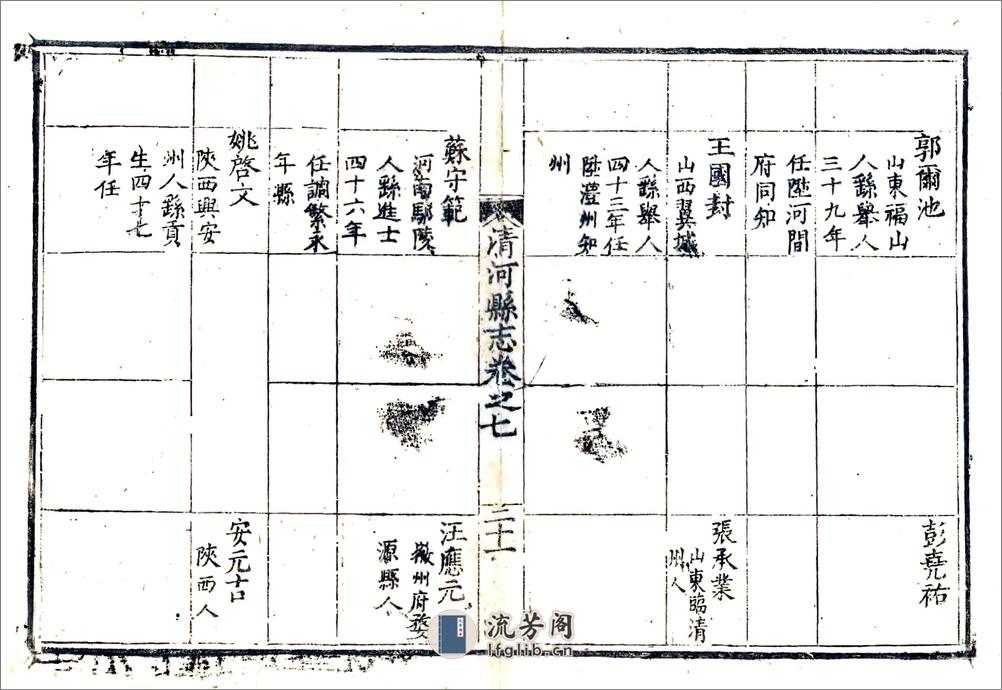 郭爾池
山東福山
人縣舉人
三十九年
任陞河間
府同知
彭堯祐
王國封
山西翼城
人縣舉人
四十三年任
陞澧州知
州
張承業
山東臨清
州人
清河縣志卷之七
三十一
蘇守範
河南鄢陵
人縣進士
四十六年
任調繁永
年縣
汪應元
徽州府婺
源縣人
姚啓文
陝西興安
州人縣貢
生四十七
年任
安元吉
陝西人
流芳阁
lfglib.cn